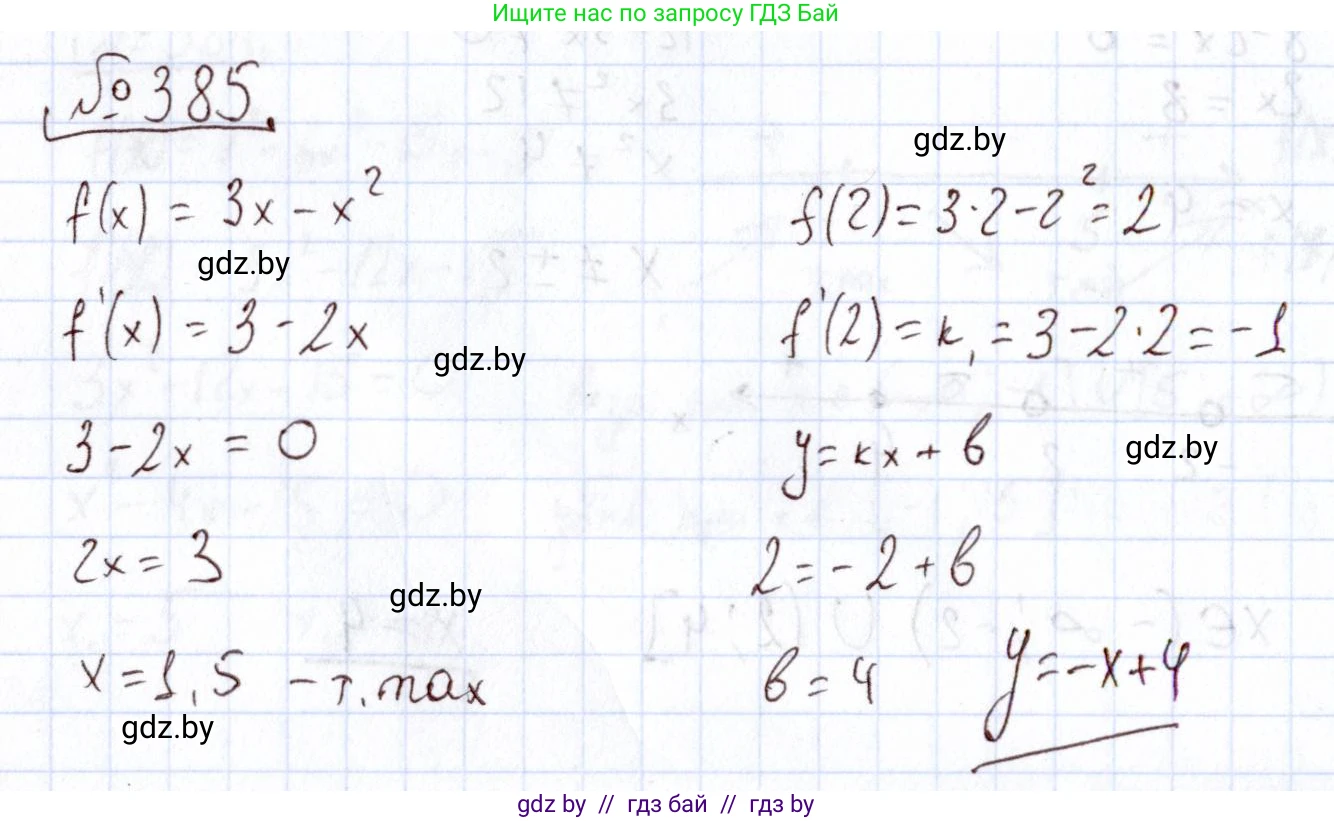 Ищите нас по запросу ГДЗ Бай
№ 385
f(x) = 3x - x²
gdz.by
f'(x) = 3 - 2x
gdz.by
3 - 2x = 0
2x = 3
gdz.by
x = 1,5 - т. max
gdz.by
gdz.by
f(2) = 3·2 - 2² = 2
f'(2) = к, = 3 - 2·2 = -1
y = кx + в
gdz.by
2 = -2 + в
в = 4
y = -x + 4
gdz by // гдз бай // гдз by